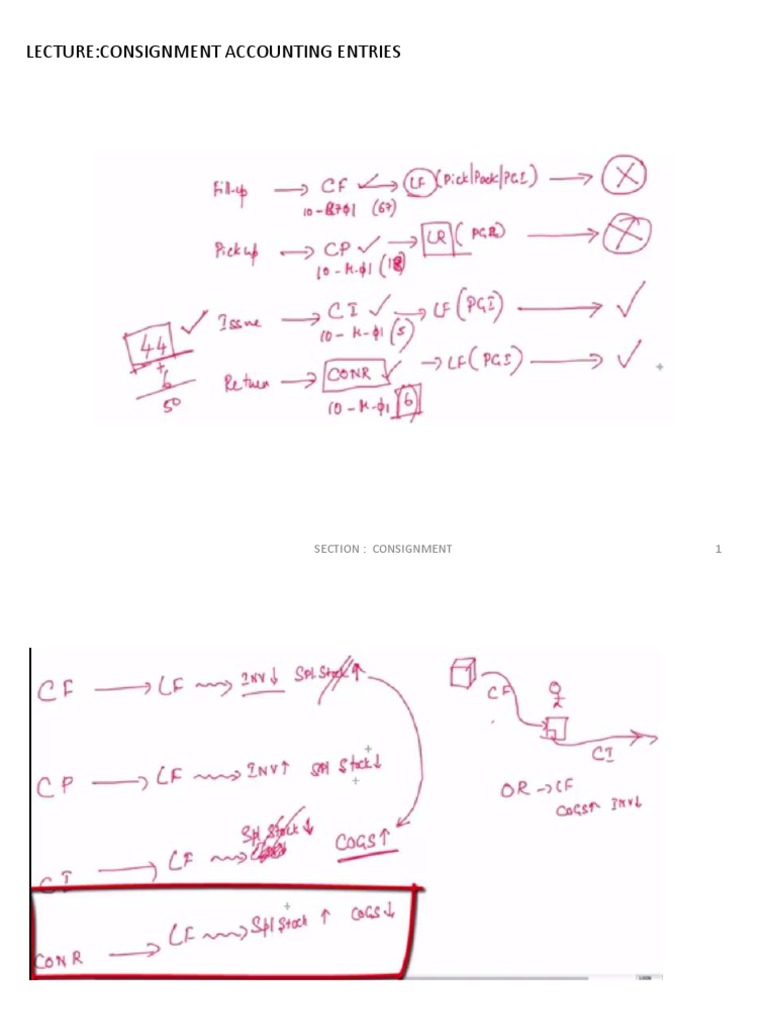 LECTURE:CONSIGNMENT ACCOUNTING ENTRIES
Fill-up → CF ✓ → LF (Pick|Pack|PGI) → X
(67)
Pickup → CP ✓ → LR (PGR) → X
10-M-φ1
Issue → CI ✓ → LF (PGI) → ✓
10-M-φ1 (5)
44 ✓
+ 6
50
Return → CONR ✓ → LF (PGI) → ✓
10-M-φ1 6
SECTION : CONSIGNMENT 1
CF → LF → INV↓ Spl. Stock ↑
CP → LF → INV↑ Spl Stock↓
CI → LF → Spl. Stock ↓ COGS↑
CONR → LF → Spl Stock ↑ COGS↓
CF
CI
OR → LF
COGS↑ INV↓